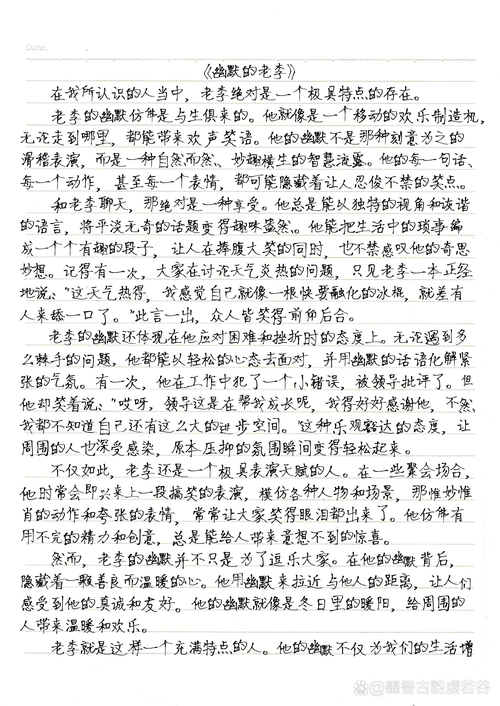 Date.
《幽默的老李》
在我所认识的人当中，老李绝对是一个极具特点的存在。
老李的幽默仿佛是与生俱来的。他就像是一个移动的欢乐制造机，
无论走到哪里，都能带来欢声笑语。他的幽默不是那种刻意为之的
滑稽表演，而是一种自然而然、妙趣横生的智慧流露。他的每一句话、
每一个动作，甚至每一个表情，都可能隐藏着让人忍俊不禁的笑点。
和老李聊天，那绝对是一种享受。他总是能以独特的视角和诙谐
的语言，将平淡无奇的话题变得趣味盎然。他能把生活中的琐事编
成一个个有趣的段子，让人在捧腹大笑的同时，也不禁感叹他的奇思
妙想。记得有一次，大家在讨论天气炎热的问题，只见老李一本正经
地说：“这天气热得，我感觉自己就像一根快要融化的冰棍，就差有
人来舔一口了。”此言一出，众人皆笑得前俯后合。
老李的幽默还体现在他应对困难和挫折时的态度上。无论遇到多
么棘手的问题，他都能以轻松的心态去面对，并用幽默的话语化解紧
张的气氛。有一次，他在工作中犯了一个小错误，被领导批评了。但
他却笑着说：“哎呀，领导这是在帮我成长呢，我得好好感谢他，不然
我都不知道自己还有这么大的进步空间。”这种乐观豁达的态度，让
周围的人也深受感染，原本压抑的氛围瞬间变得轻松起来。
不仅如此，老李还是一个极具表演天赋的人。在一些聚会场合，
他时常会即兴来上一段搞笑的表演，模仿各种人物和场景，那惟妙惟
肖的动作和夸张的表情，常常让大家笑得眼泪都出来了。他仿佛有
用不完的精力和创意，总是能给人带来意想不到的惊喜。
然而，老李的幽默并不只是为了逗乐大家。在他的幽默背后，
隐藏着一颗善良而温暖的心。他用幽默来拉近与他人的距离，让人们
感受到他的真诚和友好。他的幽默就像是冬日里的暖阳，给周围的
人带来温暖和欢乐。
老李就是这样一个充满特点的人。他的幽默不仅为我们的生活增